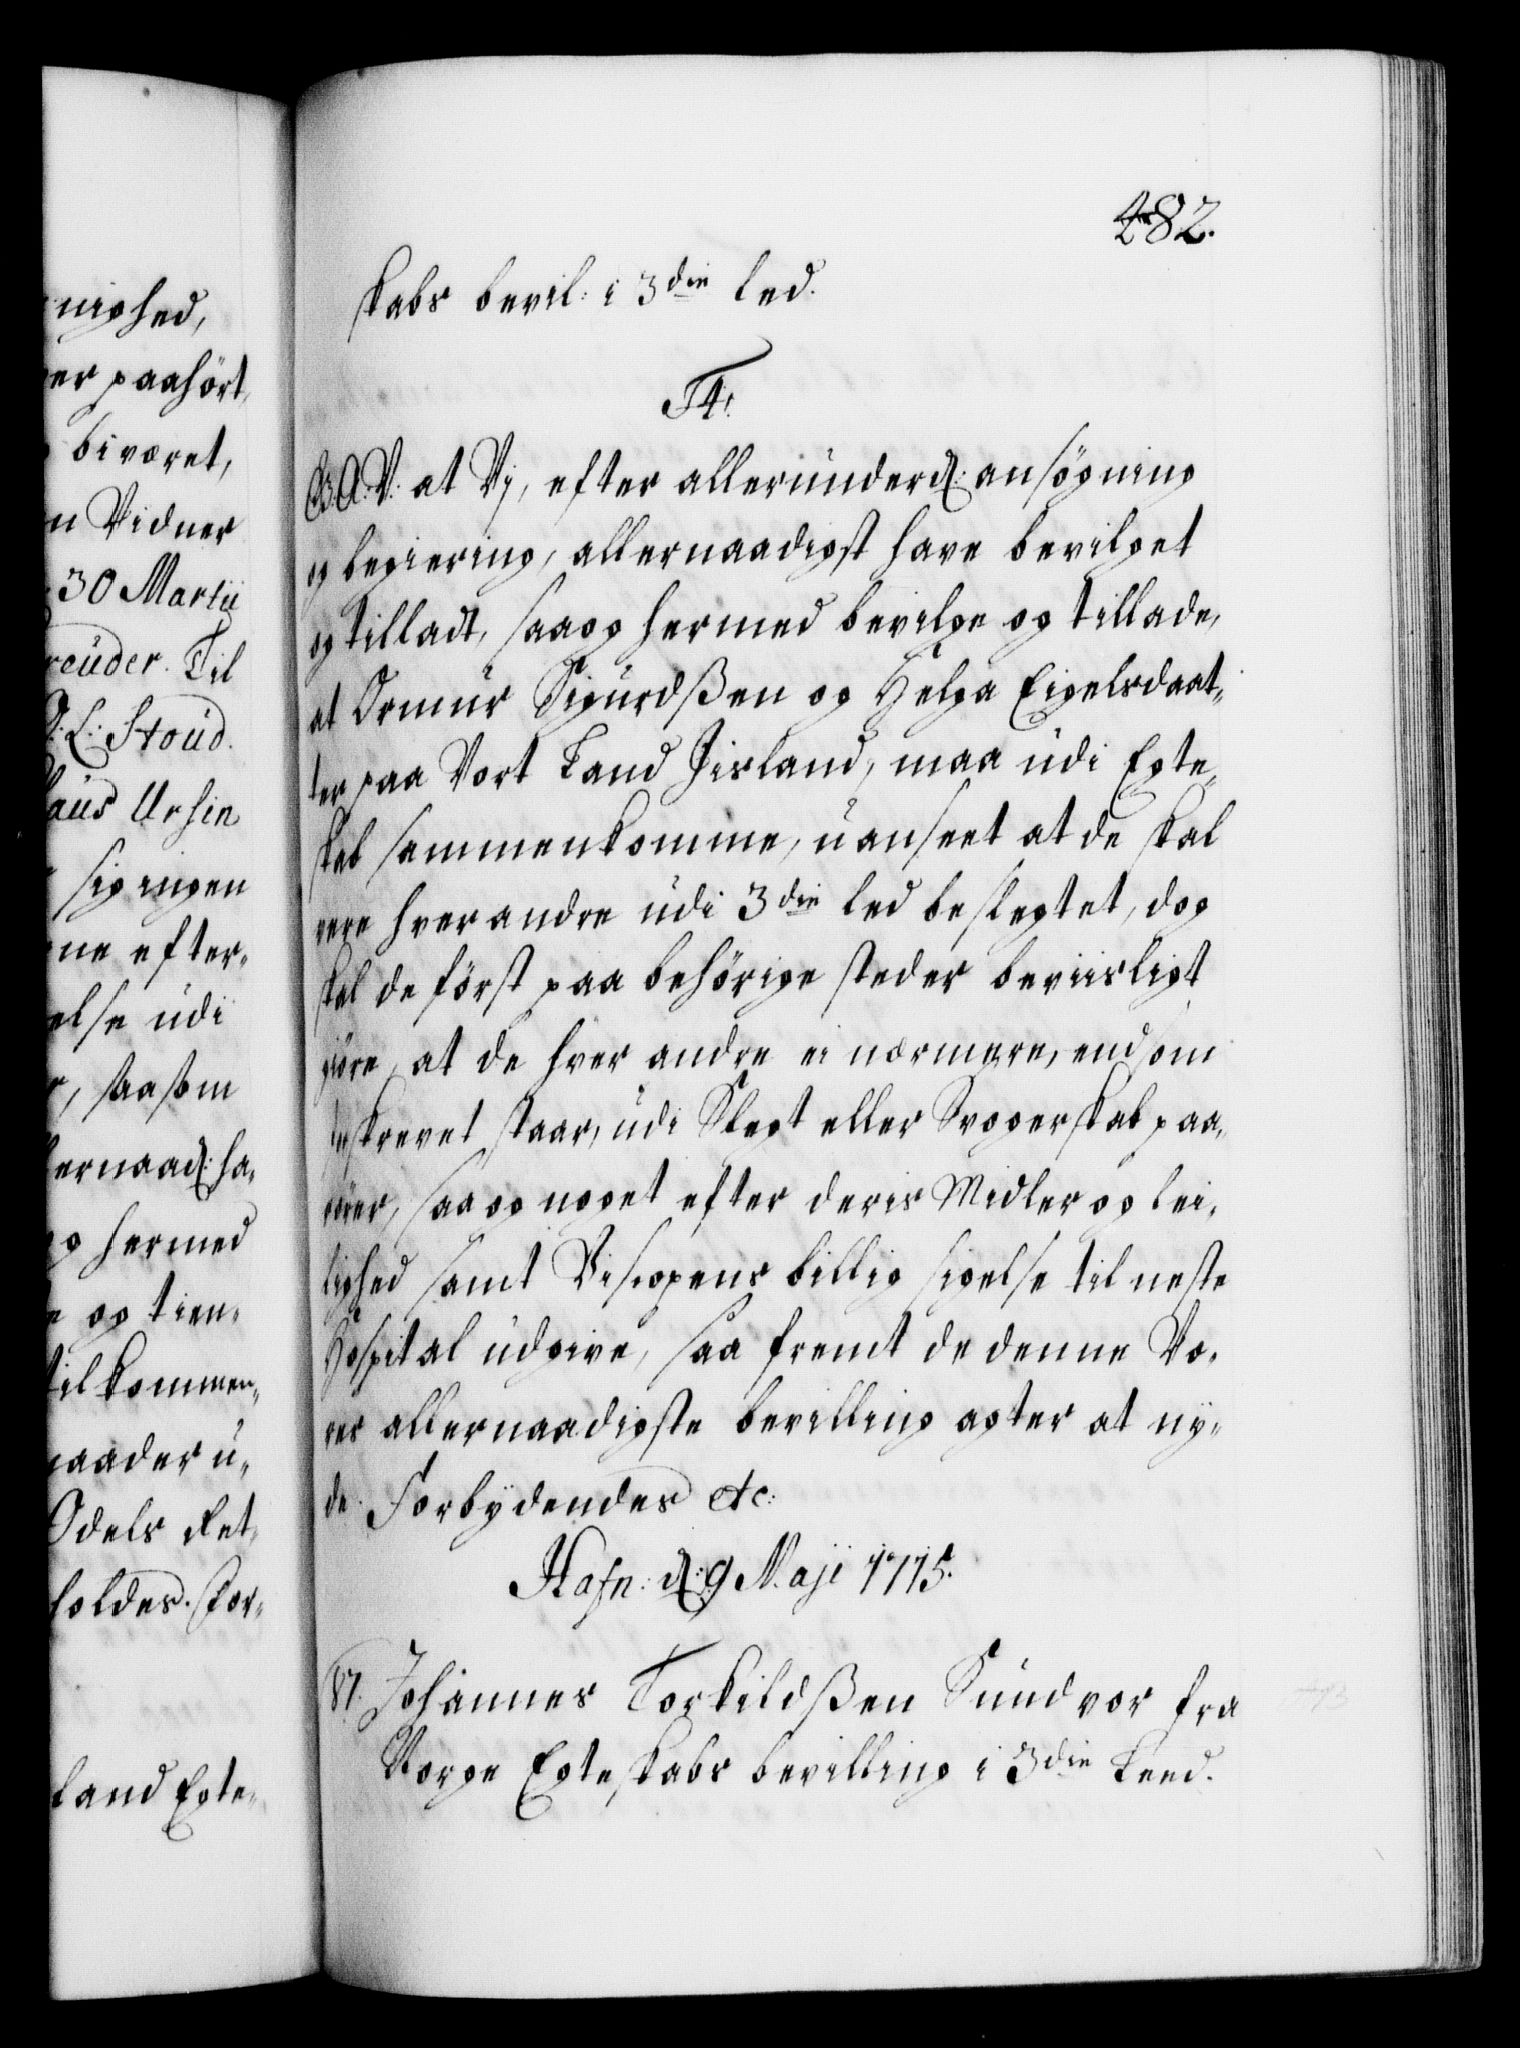 nighed,
er paahört,
biværet,
n Vidner
30 Martii
reuder. Til
L: Stoud.
aus Ursin
sig ingen
ne efter-
else udi
, saasom
lernaad: ha-
hermed
og tien-
tilkommen-
naader u-
Odels Ret-
holdes. For-
land Egte-
482.
skabs bevil: i 3die led.
F4:
G:A:V: at Vj, efter allerunderd: ansögning
og begiering, allernaadigst have bevilget
og tilladt, saa og hermed bevilge og tillade,
at Ormur Sigurdßen og Helga Eigelsdaat-
ter paa Vort Land Jisland, maa udi Egte-
skab sammenkomme, uanseet at de skal
være hver andre udi 3die led beslegtet, dog
skal de först paa behörige steder beviisligt
giöre, at de hver andre ei nærmere, end som
beskrevet staar, udi Slegt eller Svogerskab paa-
rörer, saa og noget efter deris Midler og lei-
lighed samt Biscopens billig sigelse til neste
Hospital udgive, saa fremt de denne Vo-
res allernaadigste bevilling agter at ny-
de. Forbydendes etc:
Hafn: d: 9 Maji 1715.
87. Johannes Torkildßen Sundvor fra
Norge Egteskabs bevilling i 3die Leed.